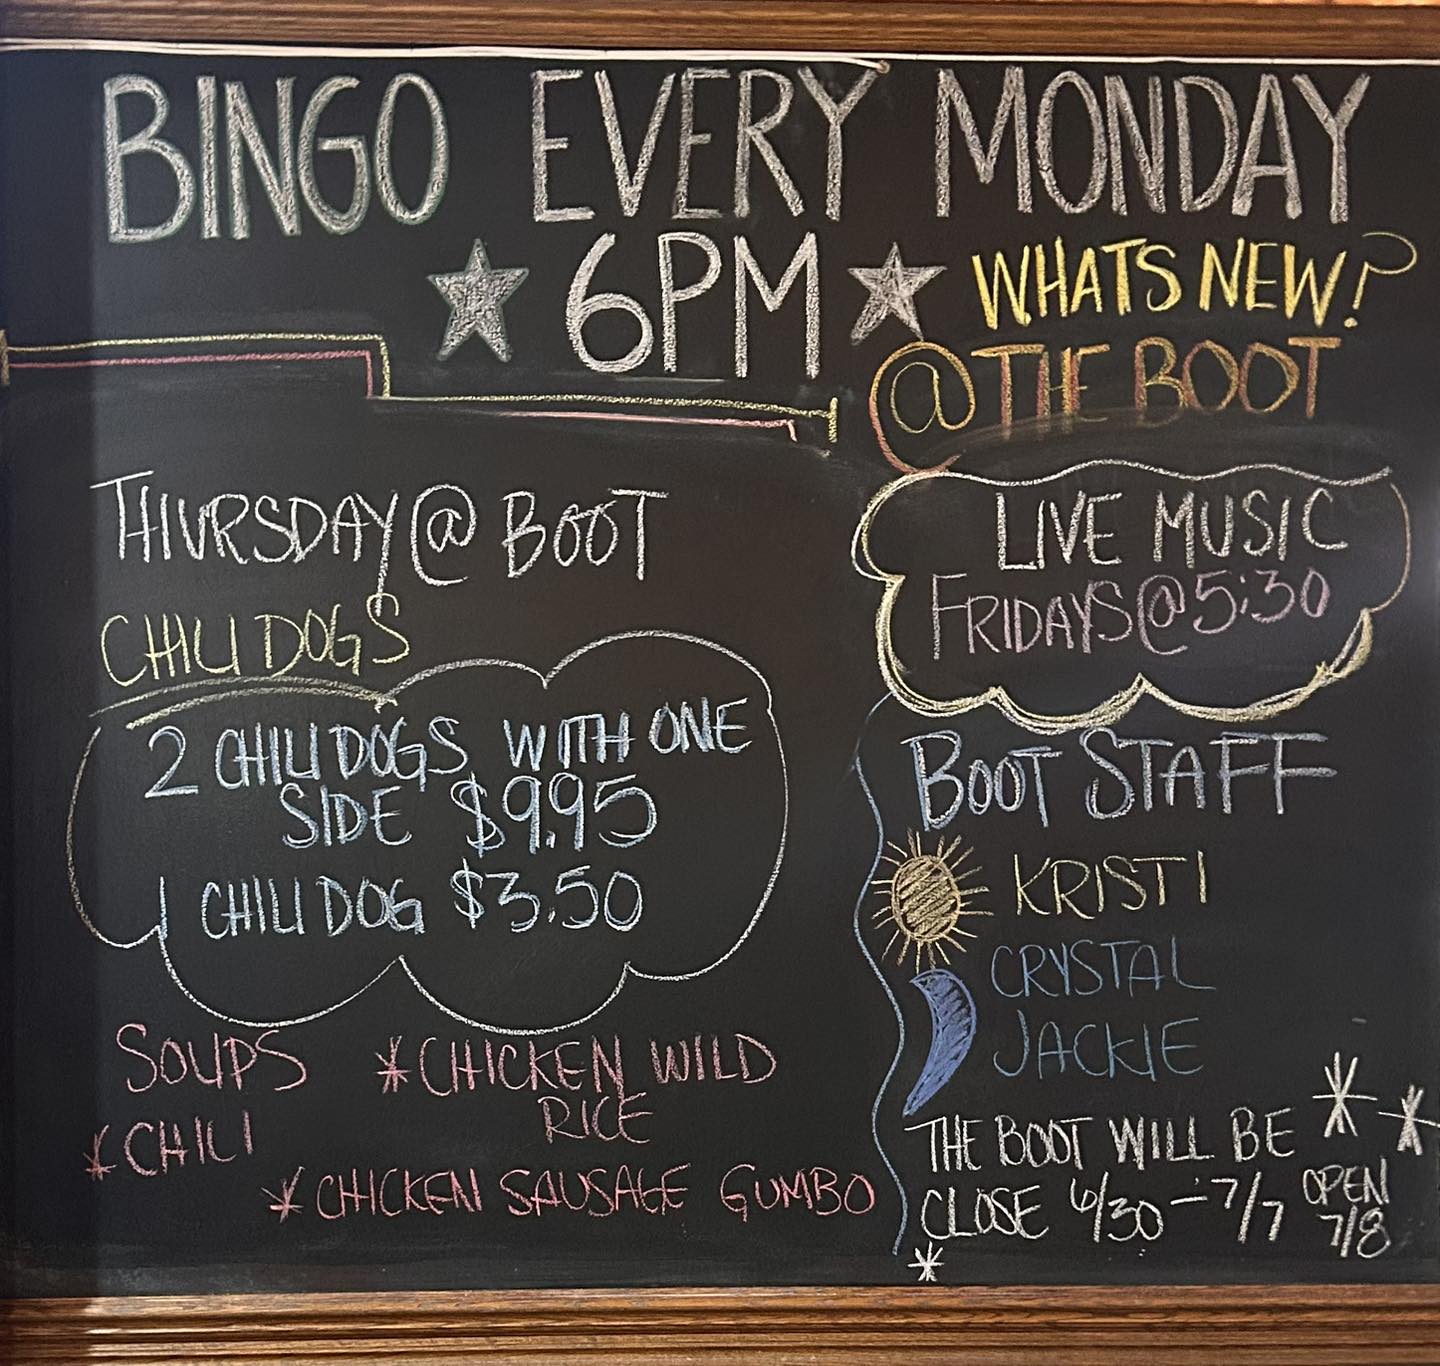 BINGO EVERY MONDAY
6PM
WHATS NEW?
@ THE BOOT
THURSDAY @ BOOT
CHILI DOGS
2 CHILI DOGS WITH ONE
SIDE $9.95
1 CHILI DOG $3.50
SOUPS
*CHICKEN WILD
RICE
*CHILI
*CHICKEN SAUSAGE GUMBO
LIVE MUSIC
FRIDAYS @ 5:30
BOOT STAFF
KRISTI
CRYSTAL
JACKIE
THE BOOT WILL BE
CLOSE 6/30 - 7/7 OPEN
7/8